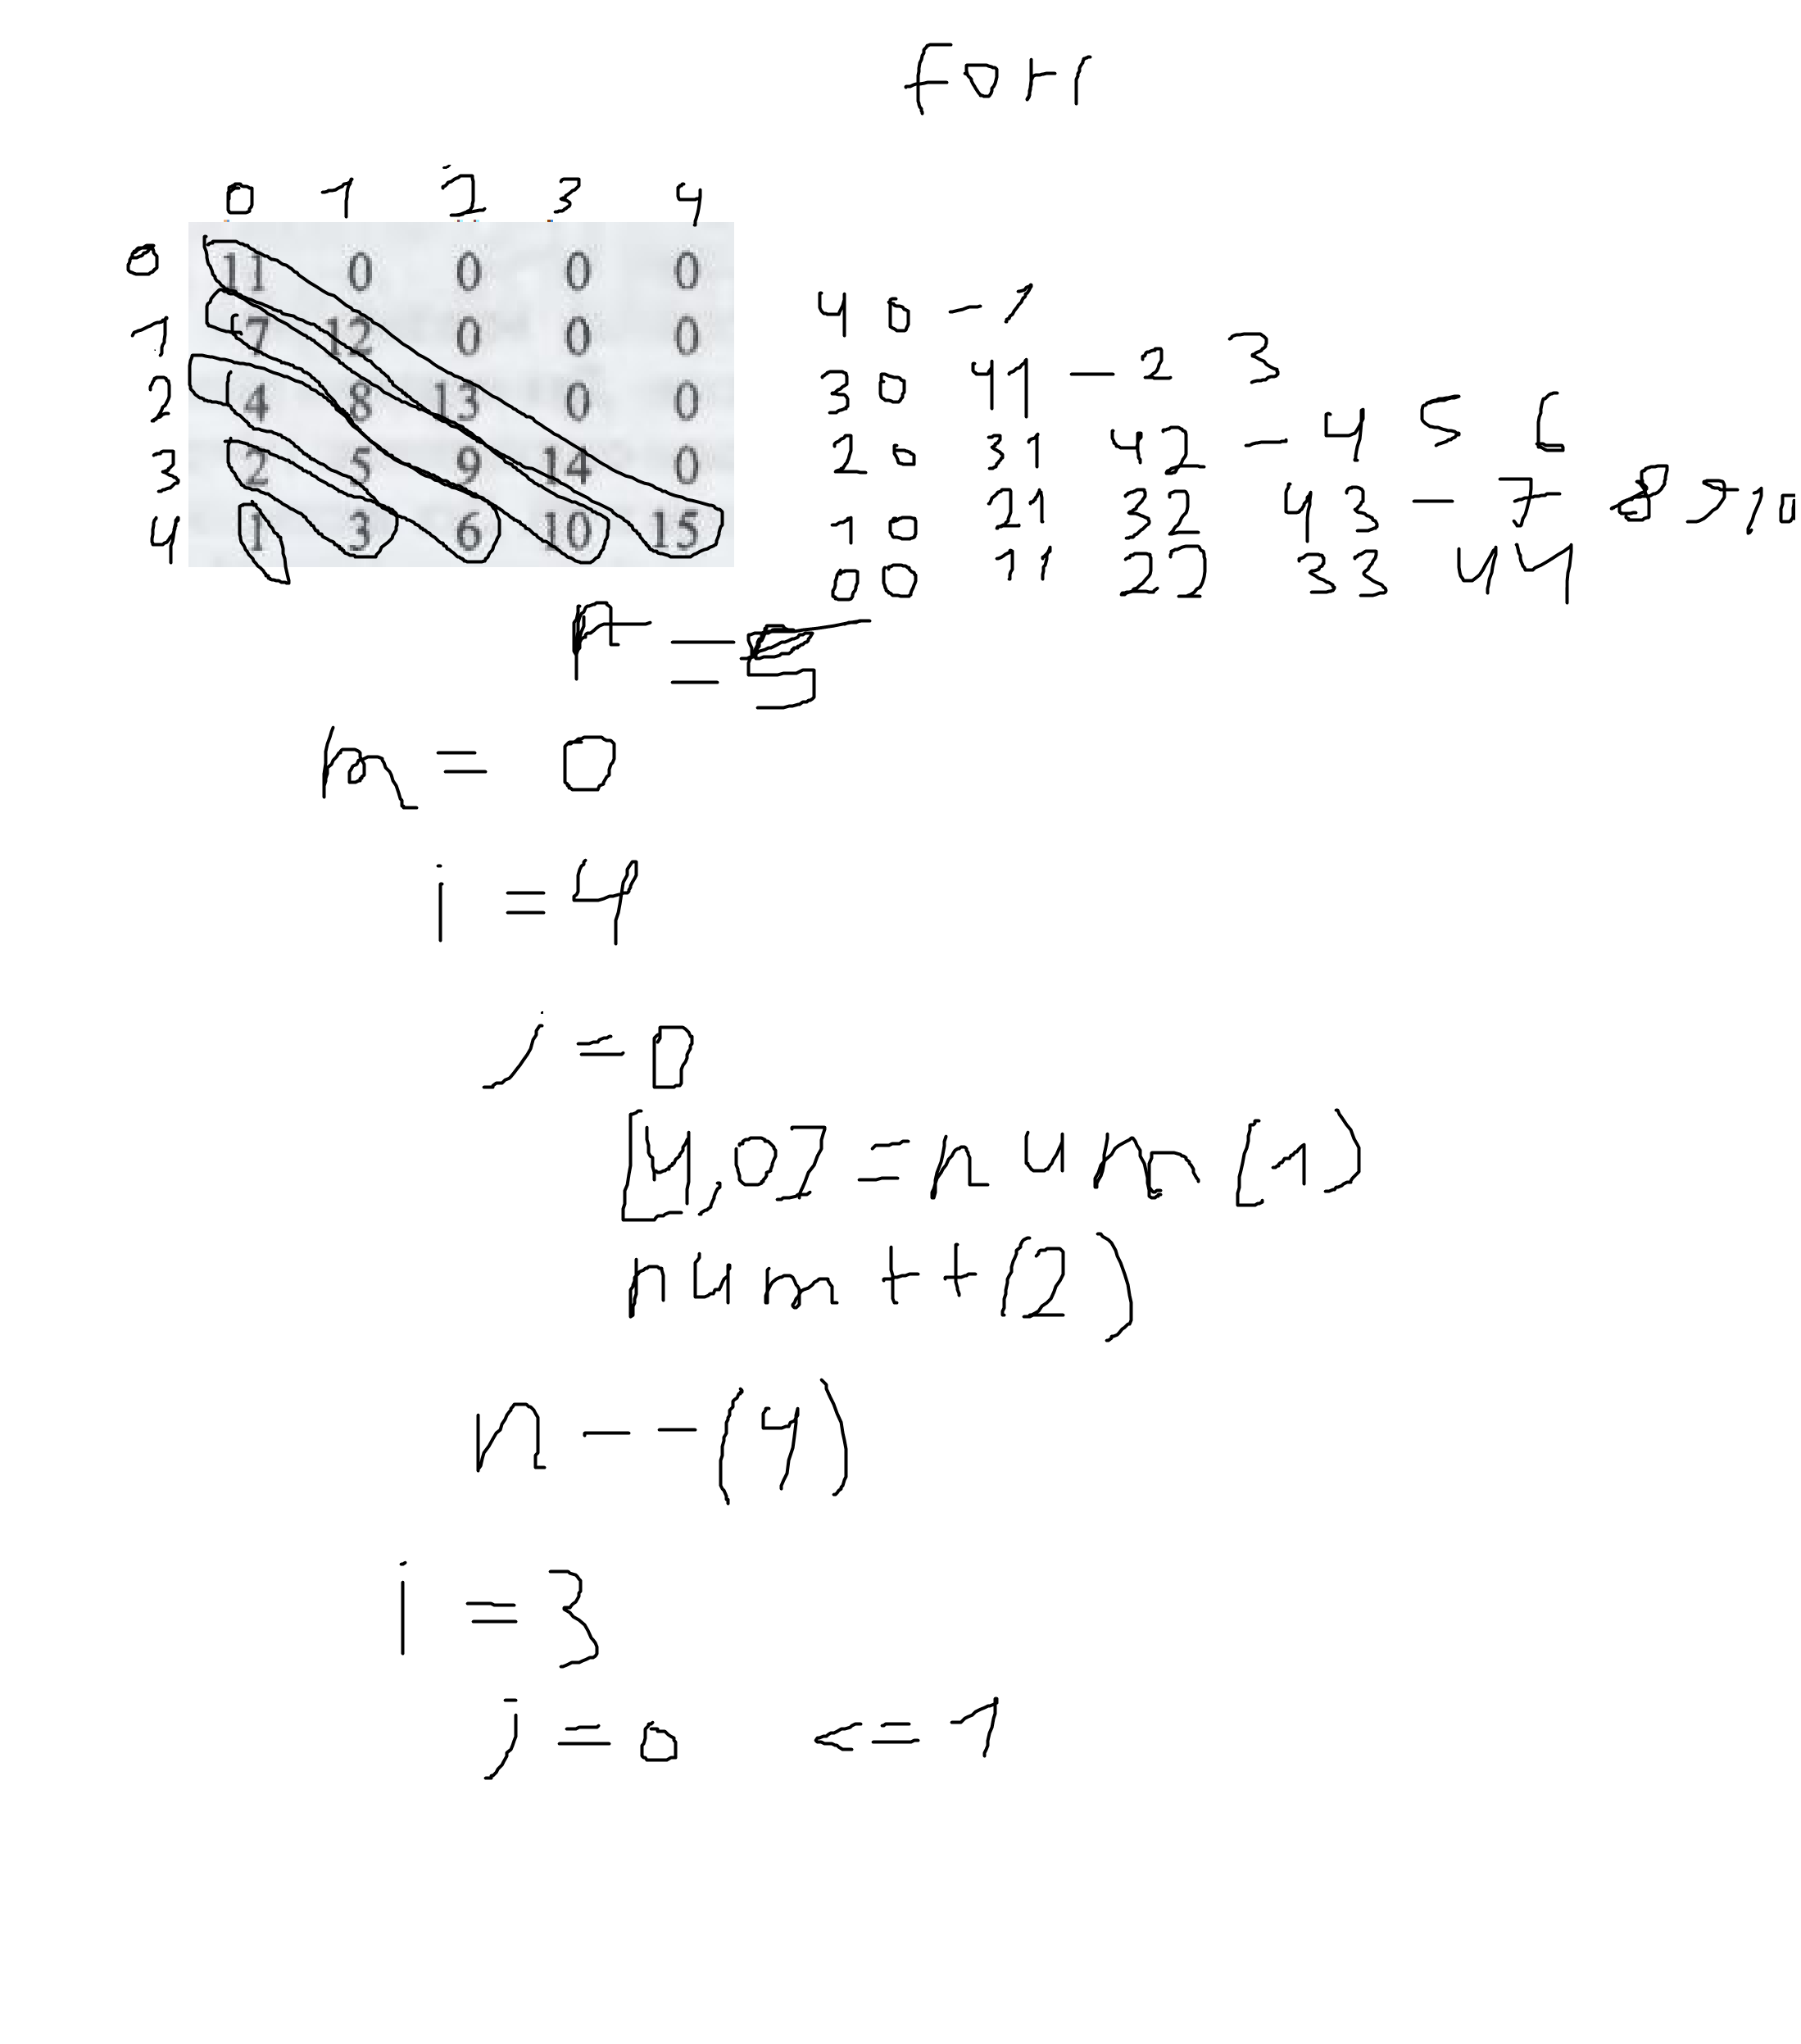 forr
0 1 2 3 4
0 11 0 0 0 0
1 7 12 0 0 0
2 4 8 13 0 0
3 2 5 9 14 0
4 1 3 6 10 15
4 0 - 1
3 0 41 - 2 3
2 0 31 42 - 4 5 6
1 0 21 32 43 - 7 8 9 10
00 11 22 33 44
= 5
m = 0
i = 4
j = 0
[4,0] = num (1)
num ++ (2)
n -- (4)
i = 3
j = 0 <= 1